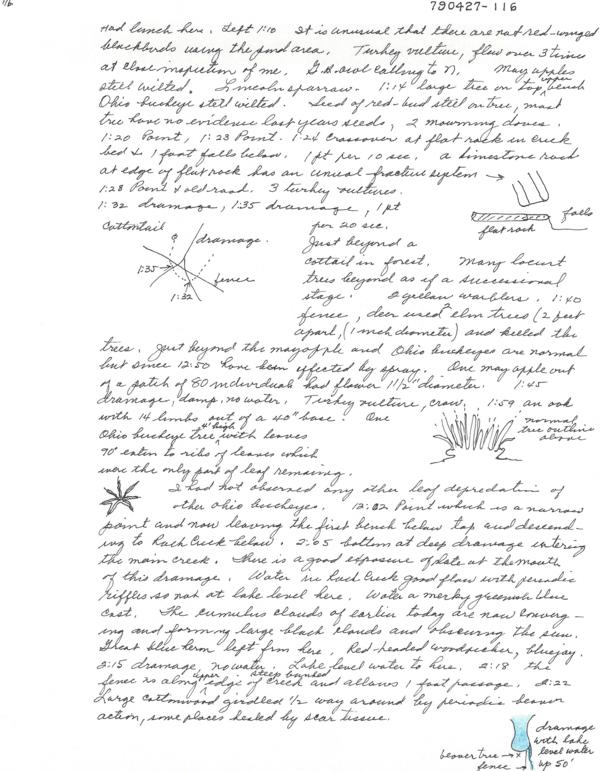 116
790427-116
Had lunch here. Left 1:10 It is unusual that there are not red-winged
blackbirds using the pond area. Turkey vulture, flew over 3 times
at close inspection of me. G.H. owl calling to N. May apples
still wilted. Lincoln sparrow. 1:14 large tree on top upper bench
Ohio buckeye still wilted. Seed of red-bud still on tree, most
tree have no evidence last years seeds, 2 mourning doves.
1:20 Point, 1:23 Point. 1:24 Crossover at flat rock in creek
bed & 1 foot falls below. 1 pt per 10 sec. a limestone rock
at edge of flat rock has an unusual fracture system →
1:28 Point & old road. 3 turkey vultures.
1:32 drainage, 1:35 drainage, 1 pt
per 20 sec.
falls
flat rock
Cottontail
drainage
1:35
1:32
fence
Just beyond a
cottail in forest. Many locust
trees beyond as if a successional
stage. warblers. 1:40
fence, deer used 2 elm trees (2 feet
apart, (1 inch diameter) and killed the
trees. Just beyond the mayapple and Ohio buckeyes are normal
but since 12:50 have been effected by spray. One may apple out
of a patch of 80 individuals had flower 1 1/2" diameter. 1:45
drainage, damp, no water. Turkey vulture, crow. 1:59 an oak
with 14 limbs out of a 40" base. One
normal
tree outline
above
Ohio buckeye tree 4' high with leaves
90% eaten to ribs of leaves which
were the only part of leaf remaining.
I had not observed any other leaf depredation of
other Ohio buckeyes. Point which is a narrow
point and now leaving the first bench below top and descend-
ing to Rock Creek below. 2:05 bottom at deep drainage entering
the main creek. There is a good exposure of slate at the mouth
of this drainage. Water in Rock Creek good flow with periodic
riffles so not at lake level here. Water a murky greenish blue
cast. The cumulus clouds of earlier today are now converg-
ing and forming large black clouds and obscuring the sun.
Great blue heron left from here. Red-headed woodpecker, bluejay.
2:15 drainage, no water. Lake level water to here. 2:18 the
fence is along upper edge of steep banked creek and allows 1 foot passage. 2:22
Large cottonwood girdled 1/2 way around by periodic beaver
action, some places healed by scar tissue.
drainage
with lake
level water
up 50'
beaver tree → x
fence →